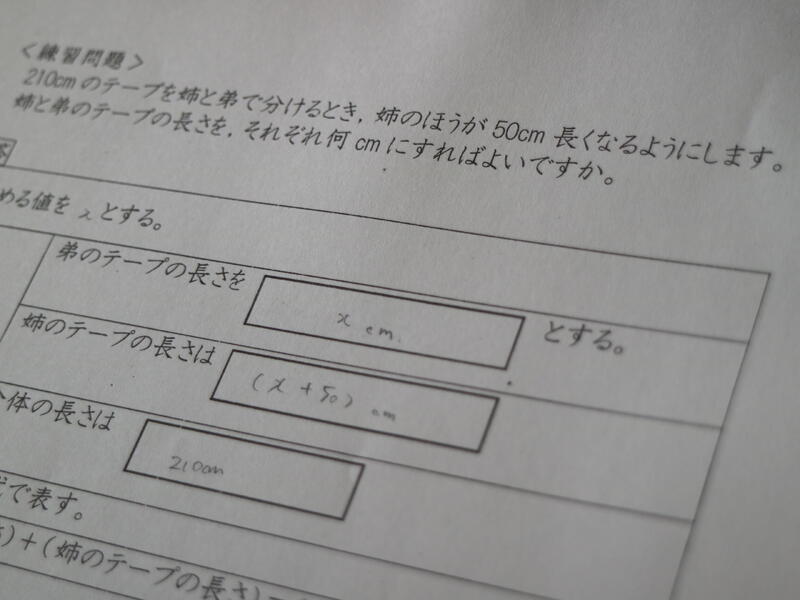 ＜練習問題＞
210cmのテープを姉と弟で分けるとき，姉のほうが50cm長くなるようにします。
姉と弟のテープの長さを，それぞれ何cmにすればよいですか。
める値を x とする。
弟のテープの長さを x cm. とする。
姉のテープの長さは (x+50) cm
体の長さは 210cm
で表す。
)＋(姉のテープの長さ)